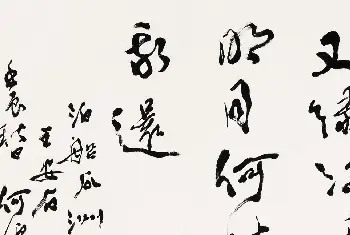 又綠江
明月何
我還
泊船瓜洲
王安石
壬辰
何